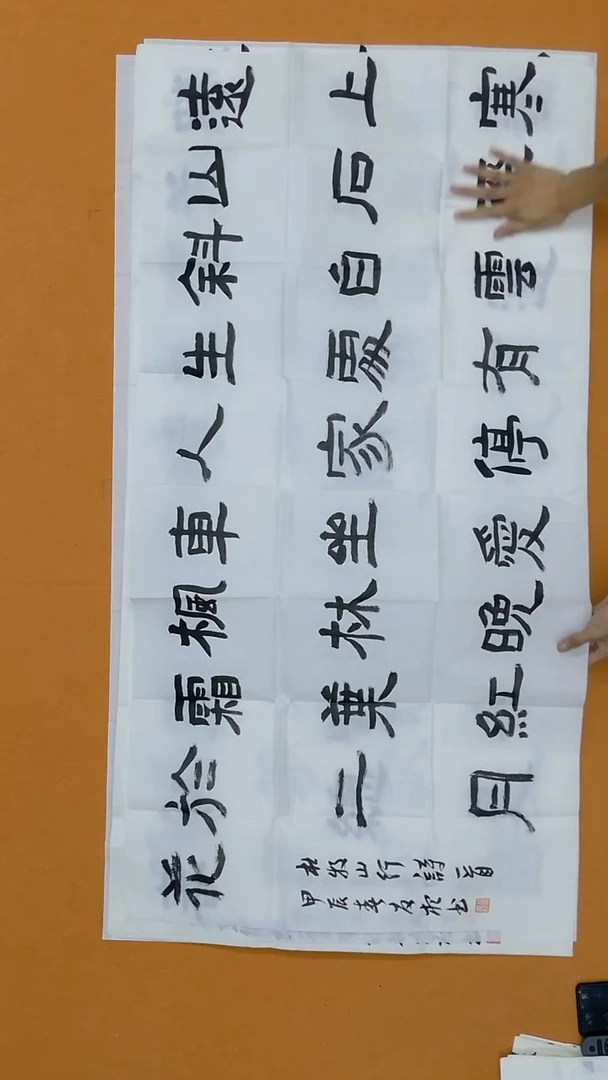 遠上寒
山石
斜白雲
生處有
人家停
車坐愛
楓林晚
霜葉紅
於二月
花
杜牧山行詩一首
甲辰春友书